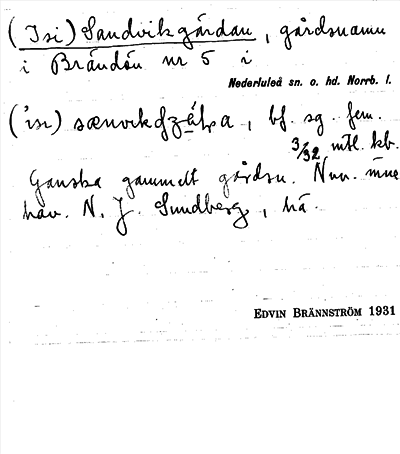 (Isi) Sandvikgårdan, gårdsnamn
i Brändön nr 5 i
Nederluleå sn. o. hd. Norrb. l.
bf. sg. fem.
3/32 mtl. kb.
Ganska gammelt gårdsn. Nuv. inne
hav. N. J. Sundberg, hä.
EDVIN BRÄNNSTRÖM 1931